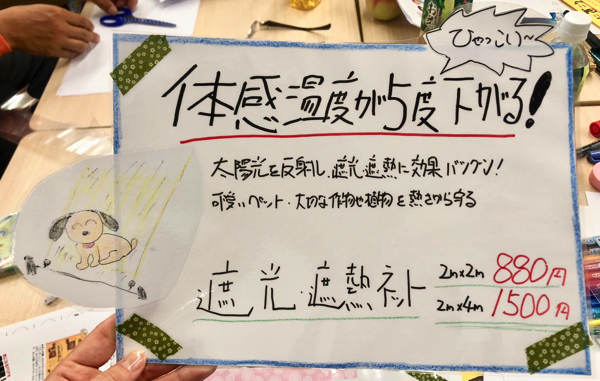 ひゃっこい〜
体感温度が5度下がる!
太陽光を反射し、遮光・遮熱に効果バツグン!
可愛いペット・大切な作物や植物を熱さから守る
遮光・遮熱ネット
2m×2m 880円
2m×4m 1500円